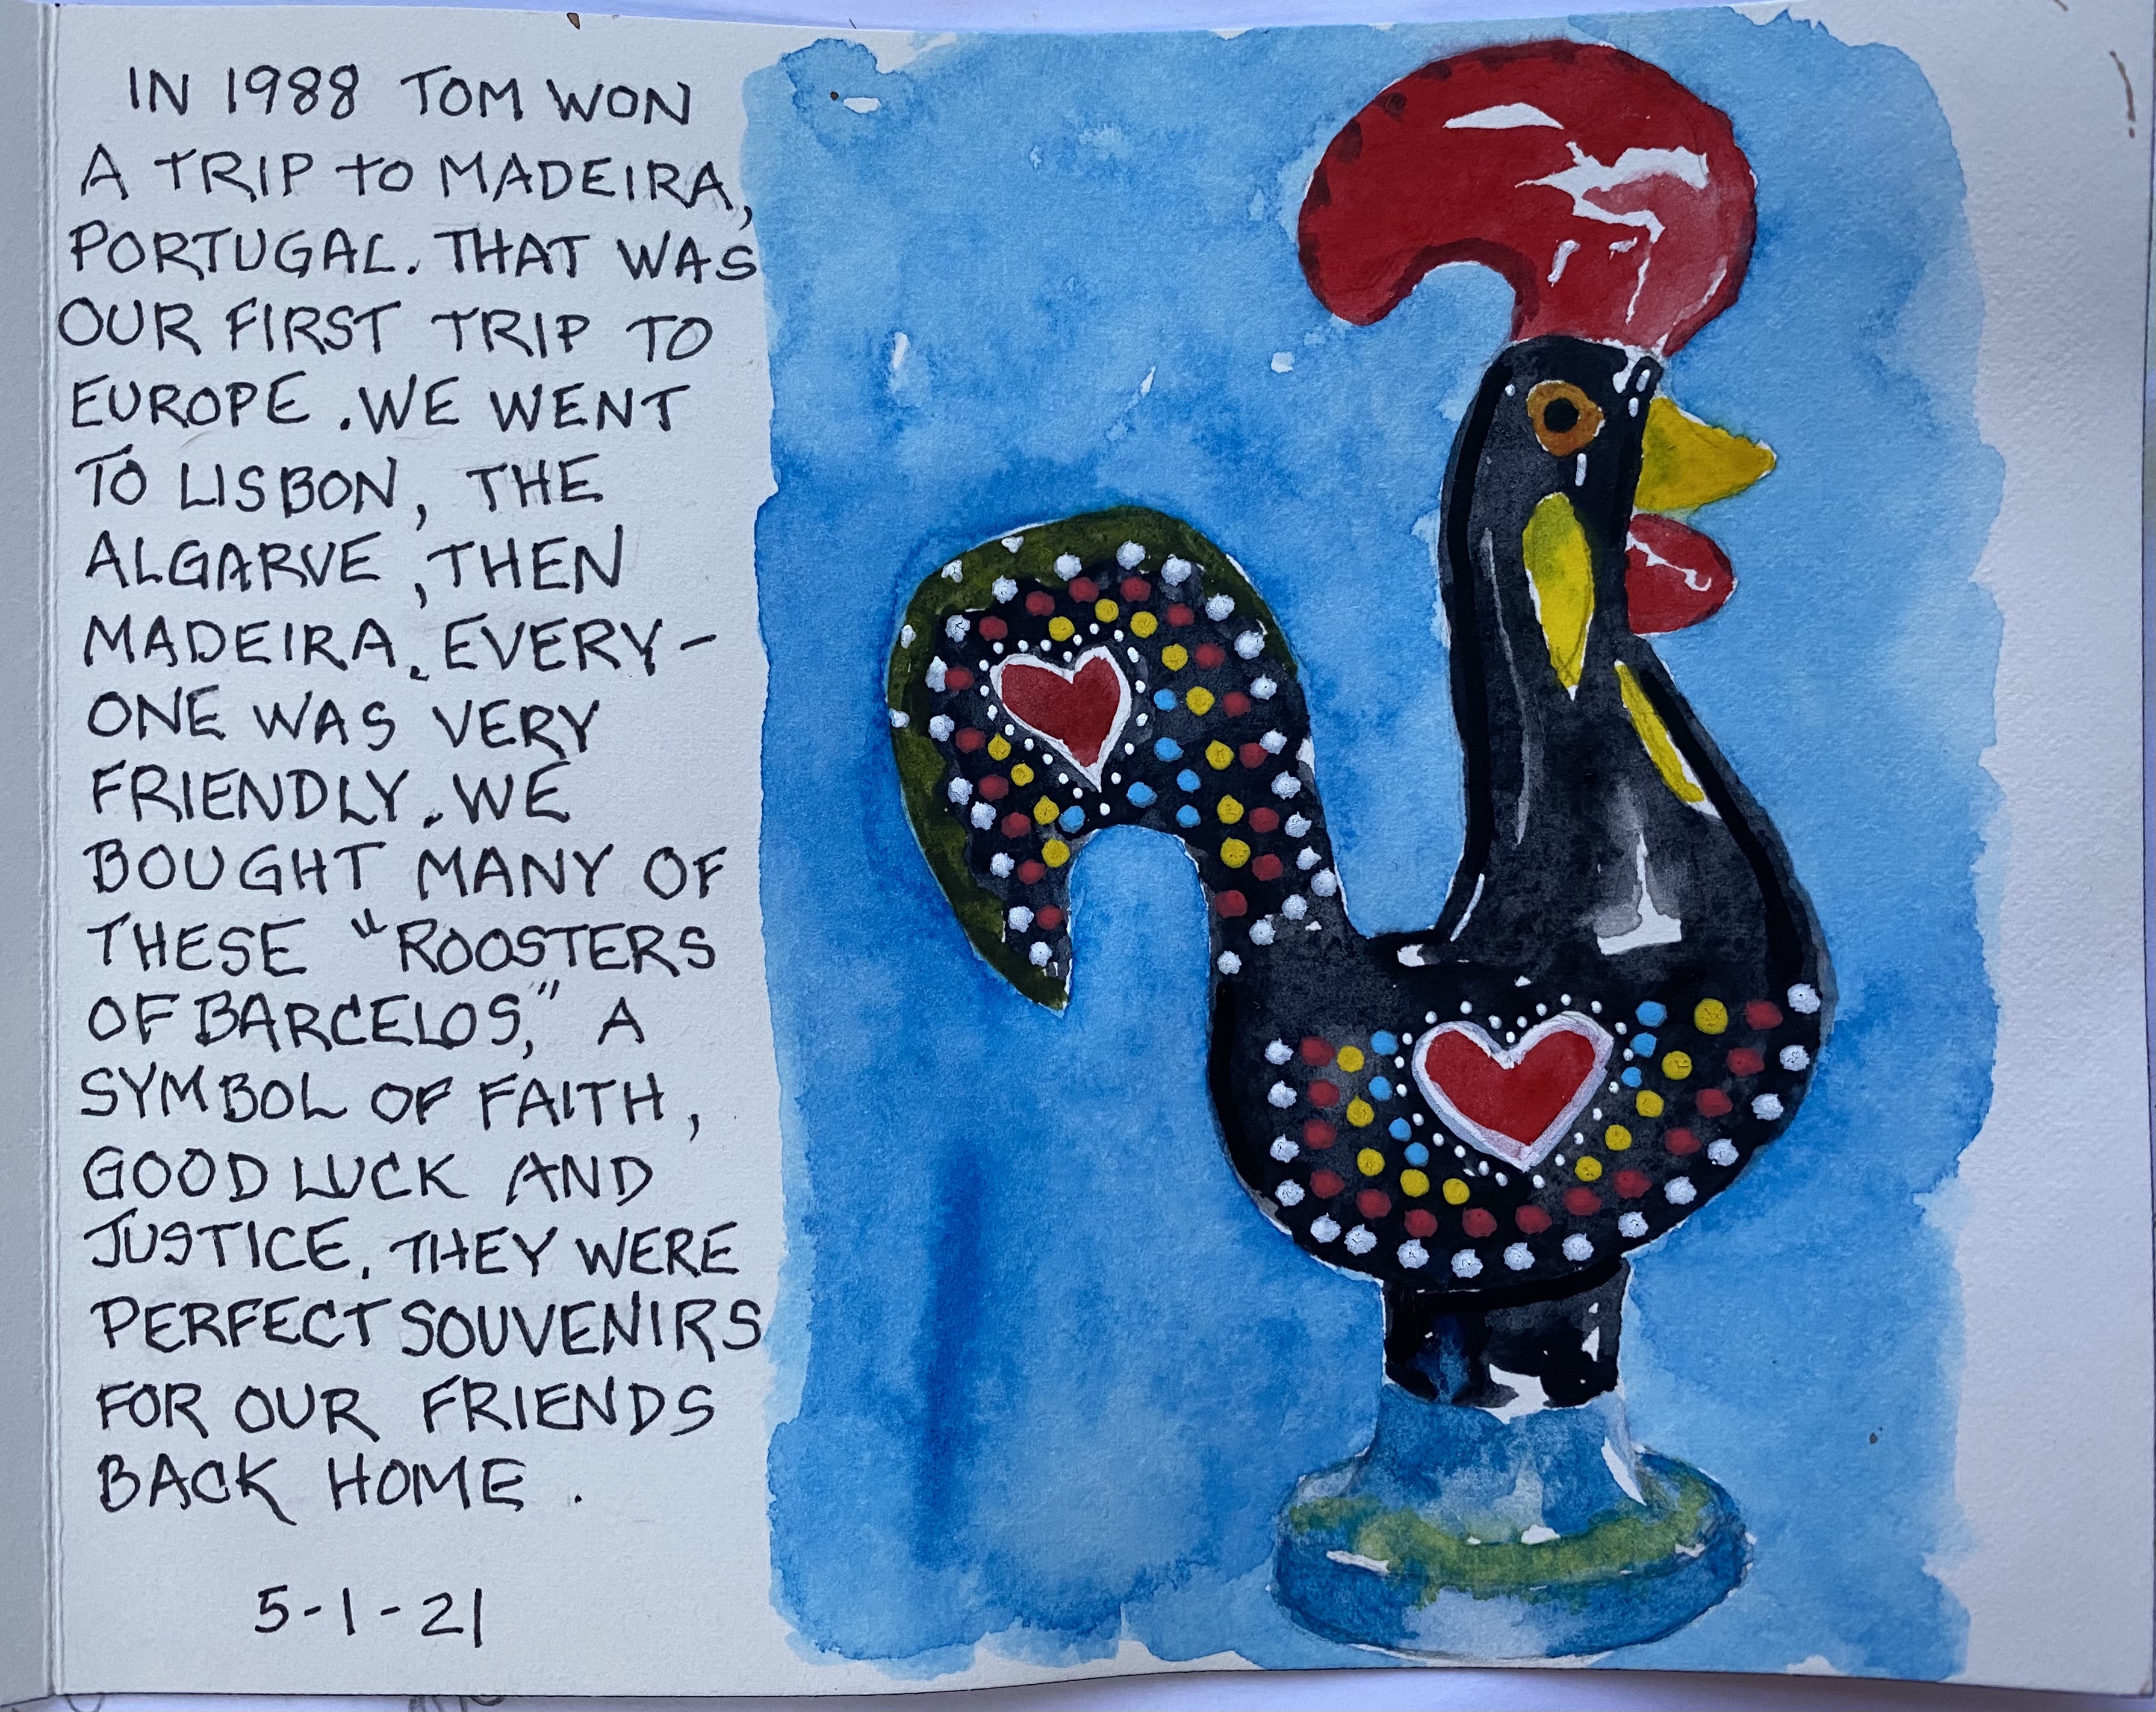 IN 1988 TOM WON
A TRIP TO MADEIRA,
PORTUGAL. THAT WAS
OUR FIRST TRIP TO
EUROPE. WE WENT
TO LISBON, THE
ALGARVE, THEN
MADEIRA. EVERY-
ONE WAS VERY
FRIENDLY. WE
BOUGHT MANY OF
THESE "ROOSTERS
OF BARCELOS," A
SYMBOL OF FAITH,
GOOD LUCK AND
JUSTICE. THEY WERE
PERFECT SOUVENIRS
FOR OUR FRIENDS
BACK HOME.
5-1-21